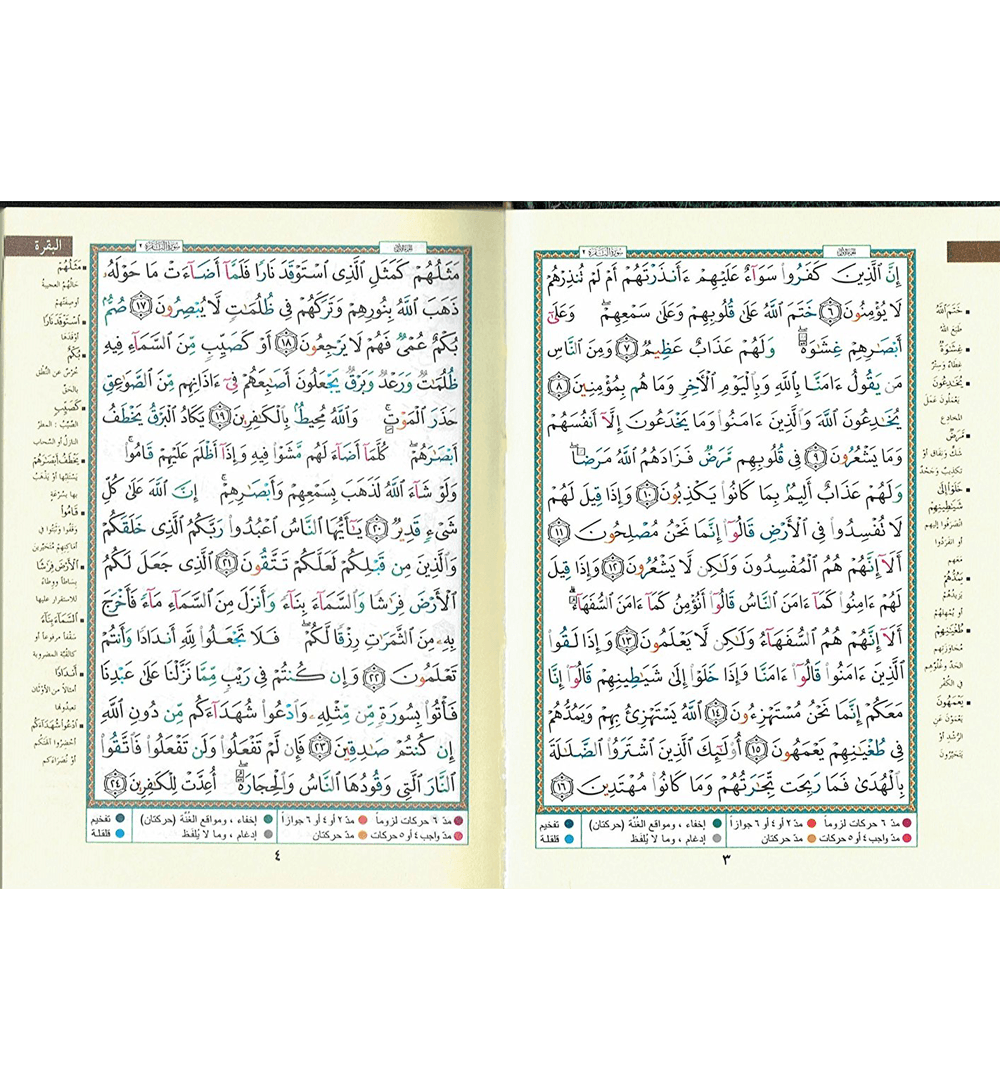 الجزء الأول
سورة البقرة ٢
إِنَّ ٱلَّذِينَ كَفَرُوا۟ سَوَآءٌ عَلَيْهِمْ ءَأَنذَرْتَهُمْ أَمْ لَمْ تُنذِرْهُمْ
لَا يُؤْمِنُونَ ٦ خَتَمَ ٱللَّهُ عَلَىٰ قُلُوبِهِمْ وَعَلَىٰ سَمْعِهِمْ ۖ وَعَلَىٰٓ
أَبْصَـٰرِهِمْ غِشَـٰوَةٌ ۖ وَلَهُمْ عَذَابٌ عَظِيمٌ ٧ وَمِنَ ٱلنَّاسِ
مَن يَقُولُ ءَامَنَّا بِٱللَّهِ وَبِٱلْيَوْمِ ٱلْـَٔاخِرِ وَمَا هُم بِمُؤْمِنِينَ ٨
يُخَـٰدِعُونَ ٱللَّهَ وَٱلَّذِينَ ءَامَنُوا۟ وَمَا يَخْدَعُونَ إِلَّآ أَنفُسَهُمْ
وَمَا يَشْعُرُونَ ٩ فِى قُلُوبِهِم مَّرَضٌ فَزَادَهُمُ ٱللَّهُ مَرَضًا ۖ
وَلَهُمْ عَذَابٌ أَلِيمٌۢ بِمَا كَانُوا۟ يَكْذِبُونَ ١٠ وَإِذَا قِيلَ لَهُمْ
لَا تُفْسِدُوا۟ فِى ٱلْأَرْضِ قَالُوٓا۟ إِنَّمَا نَحْنُ مُصْلِحُونَ ١١
أَلَآ إِنَّهُمْ هُمُ ٱلْمُفْسِدُونَ وَلَـٰكِن لَّا يَشْعُرُونَ ١٢ وَإِذَا قِيلَ
لَهُمْ ءَامِنُوا۟ كَمَآ ءَامَنَ ٱلنَّاسُ قَالُوٓا۟ أَنُؤْمِنُ كَمَآ ءَامَنَ ٱلسُّفَهَآءُ ۗ
أَلَآ إِنَّهُمْ هُمُ ٱلسُّفَهَآءُ وَلَـٰكِن لَّا يَعْلَمُونَ ١٣ وَإِذَا لَقُوا۟
ٱلَّذِينَ ءَامَنُوا۟ قَالُوٓا۟ ءَامَنَّا وَإِذَا خَلَوْا۟ إِلَىٰ شَيَـٰطِينِهِمْ قَالُوٓا۟ إِنَّا
مَعَكُمْ إِنَّمَا نَحْنُ مُسْتَهْزِءُونَ ١٤ ٱللَّهُ يَسْتَهْزِئُ بِهِمْ وَيَمُدُّهُمْ
فِى طُغْيَـٰنِهِمْ يَعْمَهُونَ ١٥ أُو۟لَـٰٓئِكَ ٱلَّذِينَ ٱشْتَرَوُا۟ ٱلضَّلَـٰلَةَ
بِٱلْهُدَىٰ فَمَا رَبِحَت تِّجَـٰرَتُهُمْ وَمَا كَانُوا۟ مُهْتَدِينَ ١٦
خَتَمَ اللَّهُ
طَبَعَ اللهُ
غِشَـٰوَةٌ
غِطَاءٌ وَسِتْرٌ
يُخَـٰدِعُونَ
يَعْمَلُونَ عَمَلَ
المخادِع
مَّرَضٌ
شَكٌّ ونِفَاق أو
تكذِيبٌ وَجَحْدٌ
خَلَوْا إِلَىٰ
شَيَـٰطِينِهِمْ
انْصَرَفُوا إليهم
أو انفَرَدُوا
مَعَهم
يَمُدُّهُمْ
يَزِيدُهُمْ
أو يُمْهِلُهُمْ
طُغْيَـٰنِهِمْ
مُجاوَزَتِهِم
الحَدَّ وغُلُوِّهِم
في الكُفْرِ
يَعْمَهُونَ
يَعْمَوْنَ عَنِ
الرُّشْدِ أو
يَتَحَيَّرُونَ
مدّ ٦ حركات لزوماً
مدّ ٢ أو ٤ أو ٦ جوازاً
إخفاء ، ومواقع الغُنَّة (حركتان)
تفخيم
مدّ واجب ٤ أو ٥ حركات
مدّ حركتان
إدغام ، وما لا يُلفظ
قلقلة
٣
البقرة
الجزء الأول
سورة البقرة ٢
مَثَلُهُمْ كَمَثَلِ ٱلَّذِى ٱسْتَوْقَدَ نَارًا فَلَمَّآ أَضَآءَتْ مَا حَوْلَهُۥ
ذَهَبَ ٱللَّهُ بِنُورِهِمْ وَتَرَكَهُمْ فِى ظُلُمَـٰتٍ لَّا يُبْصِرُونَ ١٧ صُمٌّۢ
بُكْمٌ عُمْىٌ فَهُمْ لَا يَرْجِعُونَ ١٨ أَوْ كَصَيِّبٍ مِّنَ ٱلسَّمَآءِ فِيهِ
ظُلُمَـٰتٌ وَرَعْدٌ وَبَرْقٌ يَجْعَلُونَ أَصَـٰبِعَهُمْ فِىٓ ءَاذَانِهِم مِّنَ ٱلصَّوَٰعِقِ
حَذَرَ ٱلْمَوْتِ ۚ وَٱللَّهُ مُحِيطٌۢ بِٱلْكَـٰفِرِينَ ١٩ يَكَادُ ٱلْبَرْقُ يَخْطَفُ
أَبْصَـٰرَهُمْ ۖ كُلَّمَآ أَضَآءَ لَهُم مَّشَوْا۟ فِيهِ وَإِذَآ أَظْلَمَ عَلَيْهِمْ قَامُوا۟ ۚ
وَلَوْ شَآءَ ٱللَّهُ لَذَهَبَ بِسَمْعِهِمْ وَأَبْصَـٰرِهِمْ ۚ إِنَّ ٱللَّهَ عَلَىٰ كُلِّ
شَىْءٍ قَدِيرٌ ٢٠ يَـٰٓأَيُّهَا ٱلنَّاسُ ٱعْبُدُوا۟ رَبَّكُمُ ٱلَّذِى خَلَقَكُمْ
وَٱلَّذِينَ مِن قَبْلِكُمْ لَعَلَّكُمْ تَتَّقُونَ ٢١ ٱلَّذِى جَعَلَ لَكُمُ
ٱلْأَرْضَ فِرَٰشًا وَٱلسَّمَآءَ بِنَآءً وَأَنزَلَ مِنَ ٱلسَّمَآءِ مَآءً فَأَخْرَجَ
بِهِۦ مِنَ ٱلثَّمَرَٰتِ رِزْقًا لَّكُمْ ۖ فَلَا تَجْعَلُوا۟ لِلَّهِ أَندَادًا وَأَنتُمْ
تَعْلَمُونَ ٢٢ وَإِن كُنتُمْ فِى رَيْبٍ مِّمَّا نَزَّلْنَا عَلَىٰ عَبْدِنَا
فَأْتُوا۟ بِسُورَةٍ مِّن مِّثْلِهِۦ وَٱدْعُوا۟ شُهَدَآءَكُم مِّن دُونِ ٱللَّهِ
إِن كُنتُمْ صَـٰدِقِينَ ٢٣ فَإِن لَّمْ تَفْعَلُوا۟ وَلَن تَفْعَلُوا۟ فَٱتَّقُوا۟
ٱلنَّارَ ٱلَّتِى وَقُودُهَا ٱلنَّاسُ وَٱلْحِجَارَةُ ۖ أُعِدَّتْ لِلْكَـٰفِرِينَ ٢٤
مَثَلُهُمْ
حالُهُمُ العجيبةُ
أوصِفَتُهُمْ
ٱسْتَوْقَدَ نَارًا
أوْقَدَها
بُكْمٌ
خُرْسٌ عن النُّطْقِ
بالحَقِّ
كَصَيِّبٍ
الصَّيِّبُ : المطرُ
النازِلُ أو السَّحاب
يَخْطَفُ أَبْصَـٰرَهُمْ
يَسْتَلِبُها أوْ يَذْهَبُ
بها بِسُرْعَةٍ
قَامُوا
وَقَفُوا وثَبَتُوا في
أماكِنِهِمْ مُتَحَيِّرين
الْأَرْضَ فِرَٰشًا
بِسَاطاً ووِطَاءً
للاستقرارِ عليها
السَّمَآءَ بِنَآءً
سَقْفاً مرفوعاً أو
كالقُبَّةِ المضروبة
أَندَادًا
أمثالاً من الأوْثَانِ
تعبدُونها
ادْعُوا شُهَدَآءَكُم
احْضِرُوا آلهتَكُم
أوْ نُصَرَاءَكم
مدّ ٦ حركات لزوماً
مدّ ٢ أو ٤ أو ٦ جوازاً
إخفاء ، ومواقع الغُنَّة (حركتان)
تفخيم
مدّ واجب ٤ أو ٥ حركات
مدّ حركتان
إدغام ، وما لا يُلفظ
قلقلة
٤